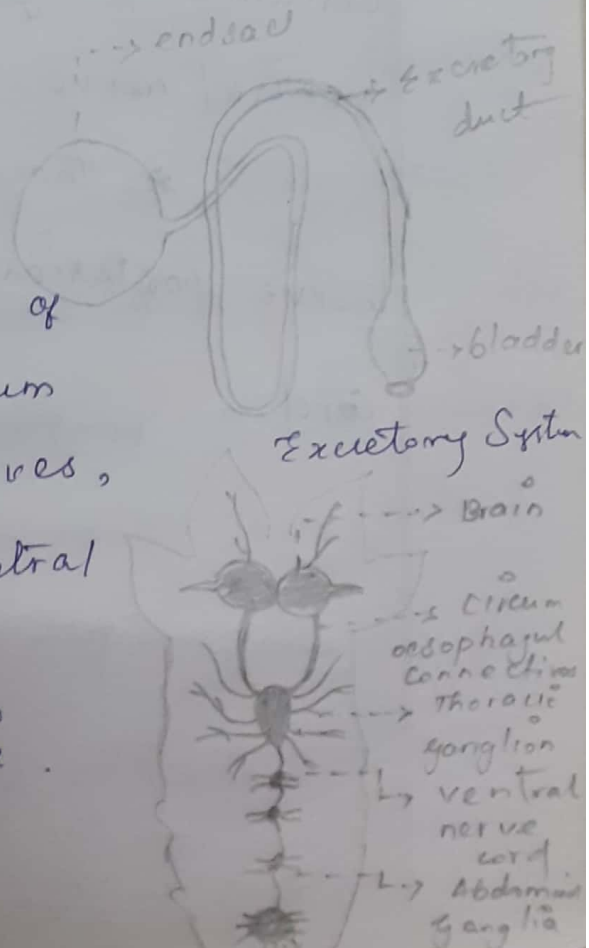 endsac
Excretory
duct
of
um
bladder
Excretory System
ves,
Brain
tral
Circum
oesophagul
connectives
Thoracic
ganglion
ventral
nerve
cord
Abdominal
ganglia